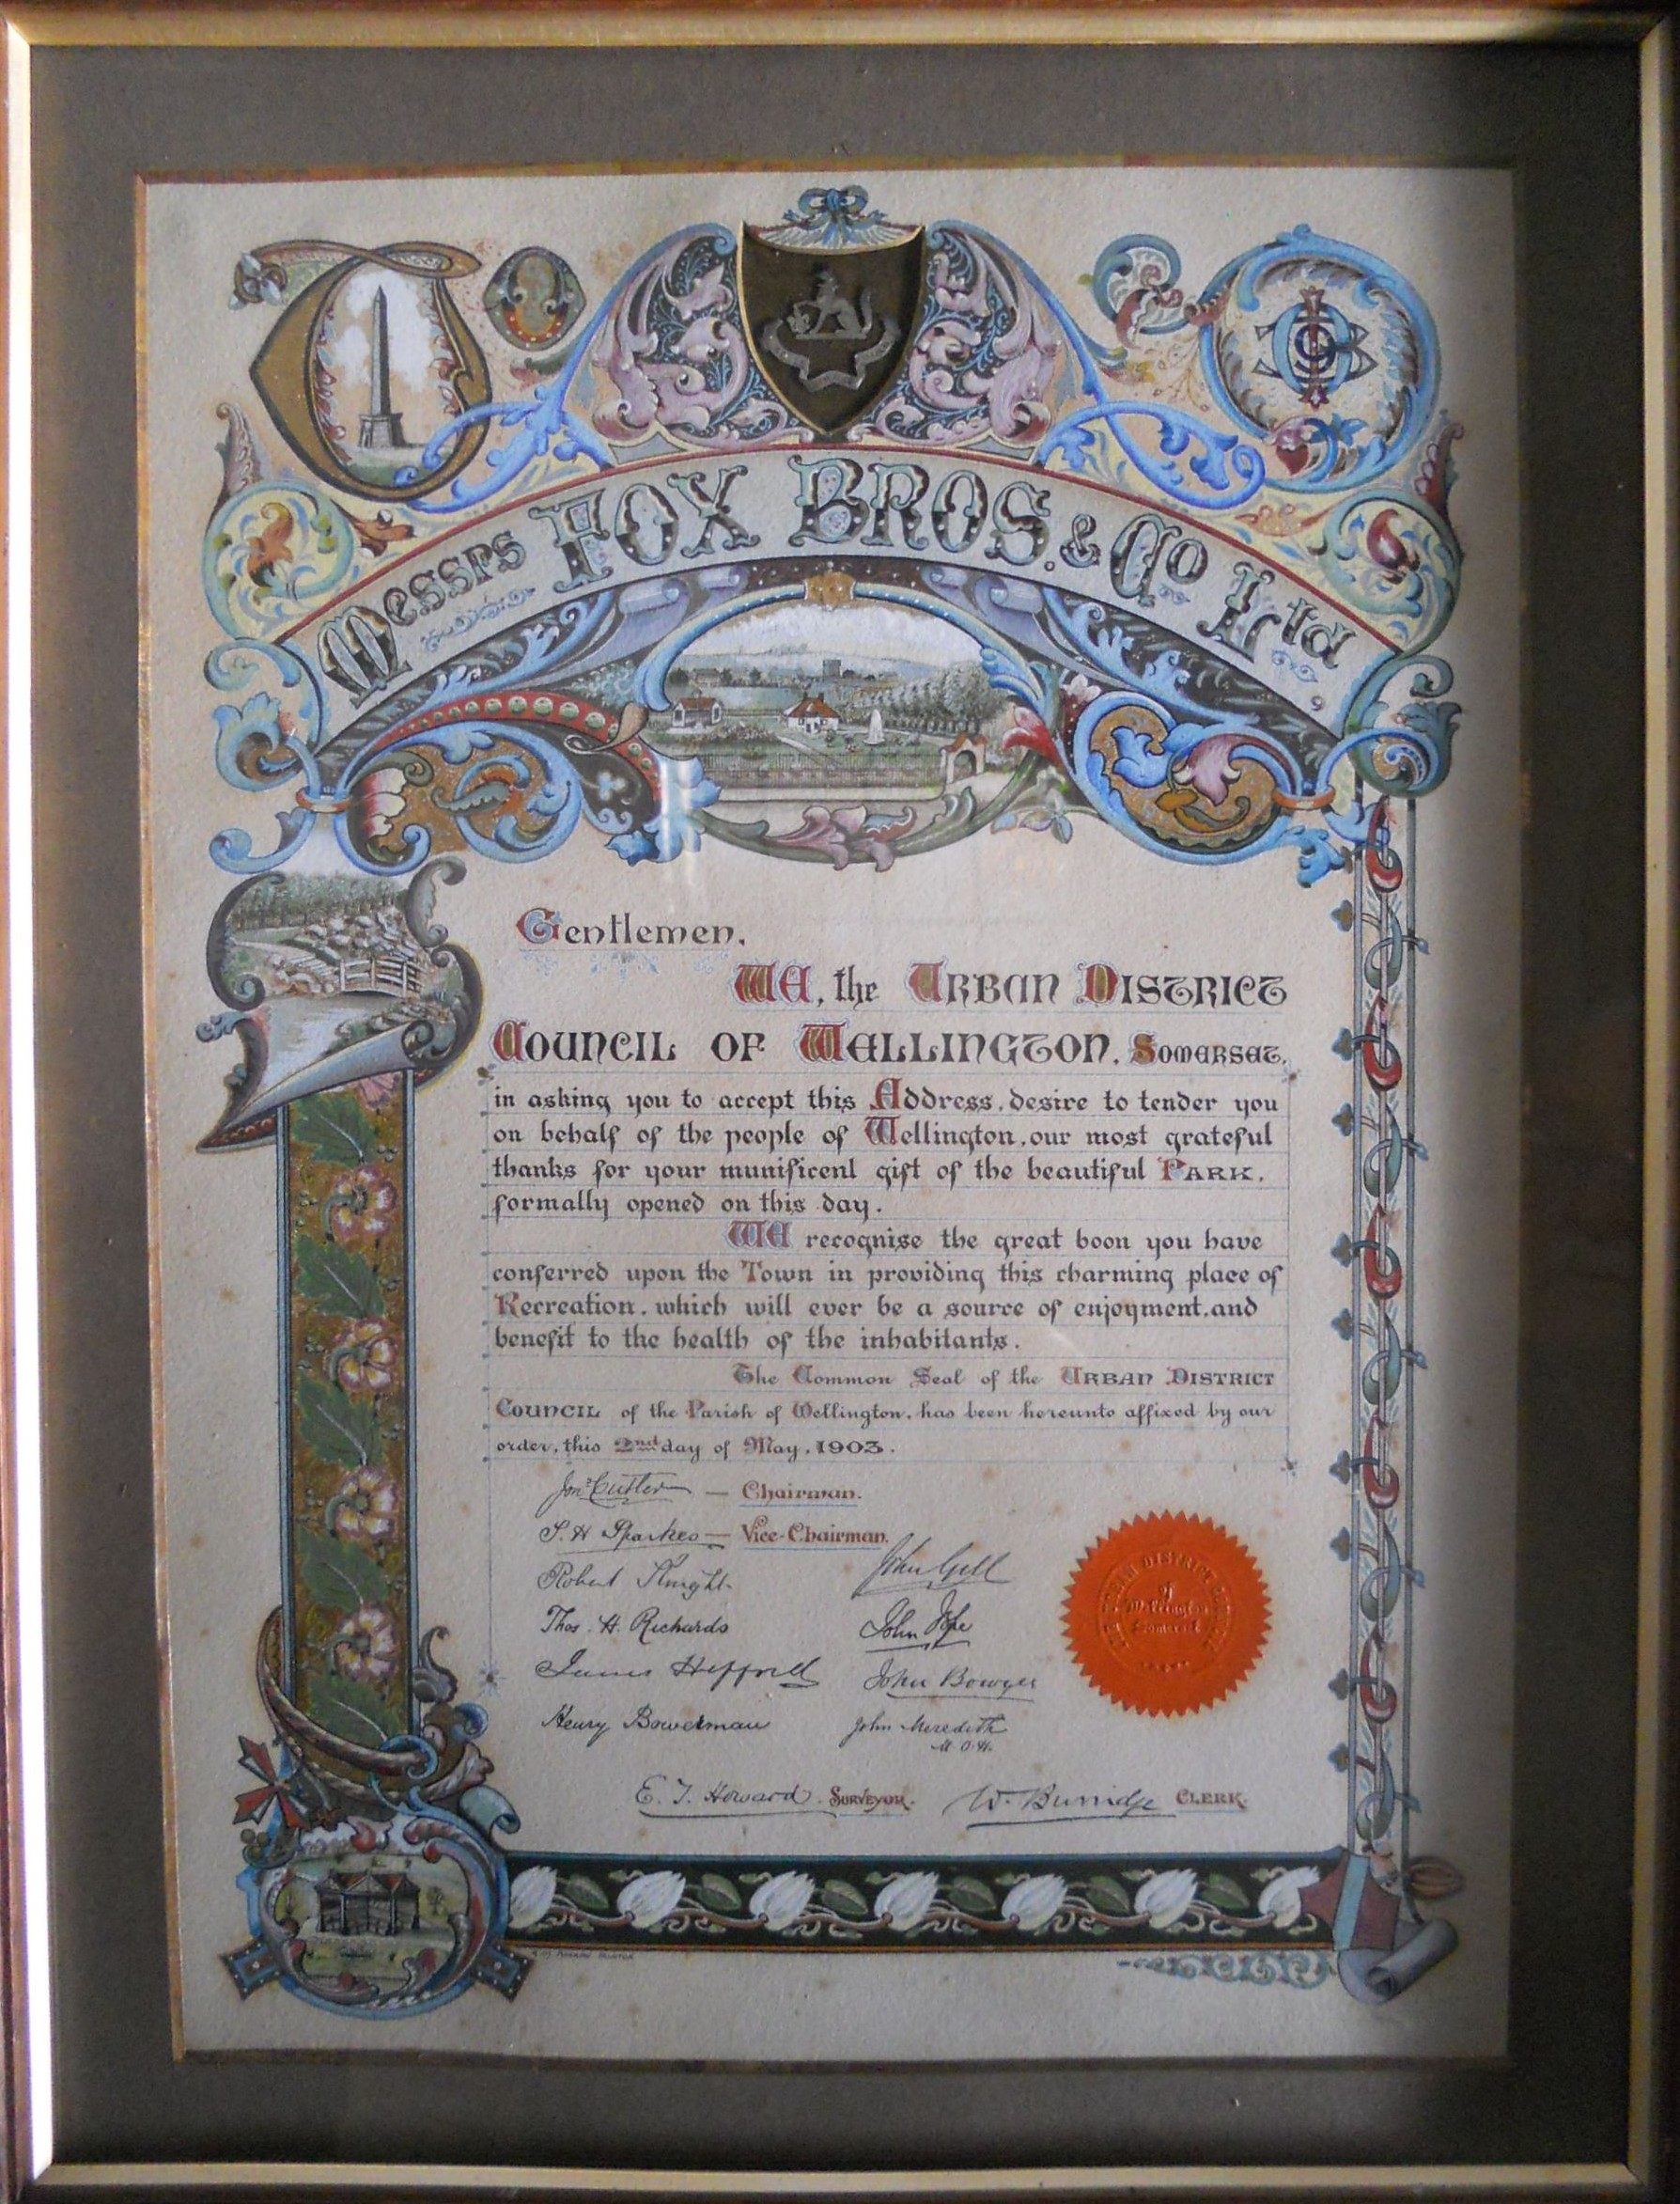 To
Messrs FOX BROS. & Co Ltd
Gentlemen,
WE, the URBAN DISTRICT
COUNCIL OF WELLINGTON, SOMERSET,
in asking you to accept this Address, desire to tender you
on behalf of the people of Wellington, our most grateful
thanks for your munificent gift of the beautiful PARK,
formally opened on this day.
WE recognise the great boon you have
conferred upon the Town in providing this charming place of
Recreation, which will ever be a source of enjoyment, and
benefit to the health of the inhabitants.
The Common Seal of the URBAN DISTRICT
COUNCIL of the Parish of Wellington, has been hereunto affixed by our
order, this 2nd day of May, 1903.
Cutler — Chairman.
S. H Sparkes — Vice-Chairman.
Robert Knight John Gill
Thos. H. Richards John Pope
James John Bowyer
Henry Bowerman John Meredith
M.O.H.
E. T. Howard. SURVEYOR. W. Burridge CLERK.
URBAN DISTRICT COUNCIL
of
Wellington
Somerset